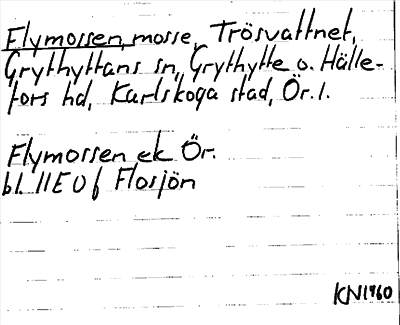 Flymossen, mosse, Trösvattnet,
Grythyttans sn, Grythytte o. Hälle-
fors hd, Karlskoga stad, Ör. l.
Flymossen ek Ör.
bl. 11E 0f Flosjön
KN1960